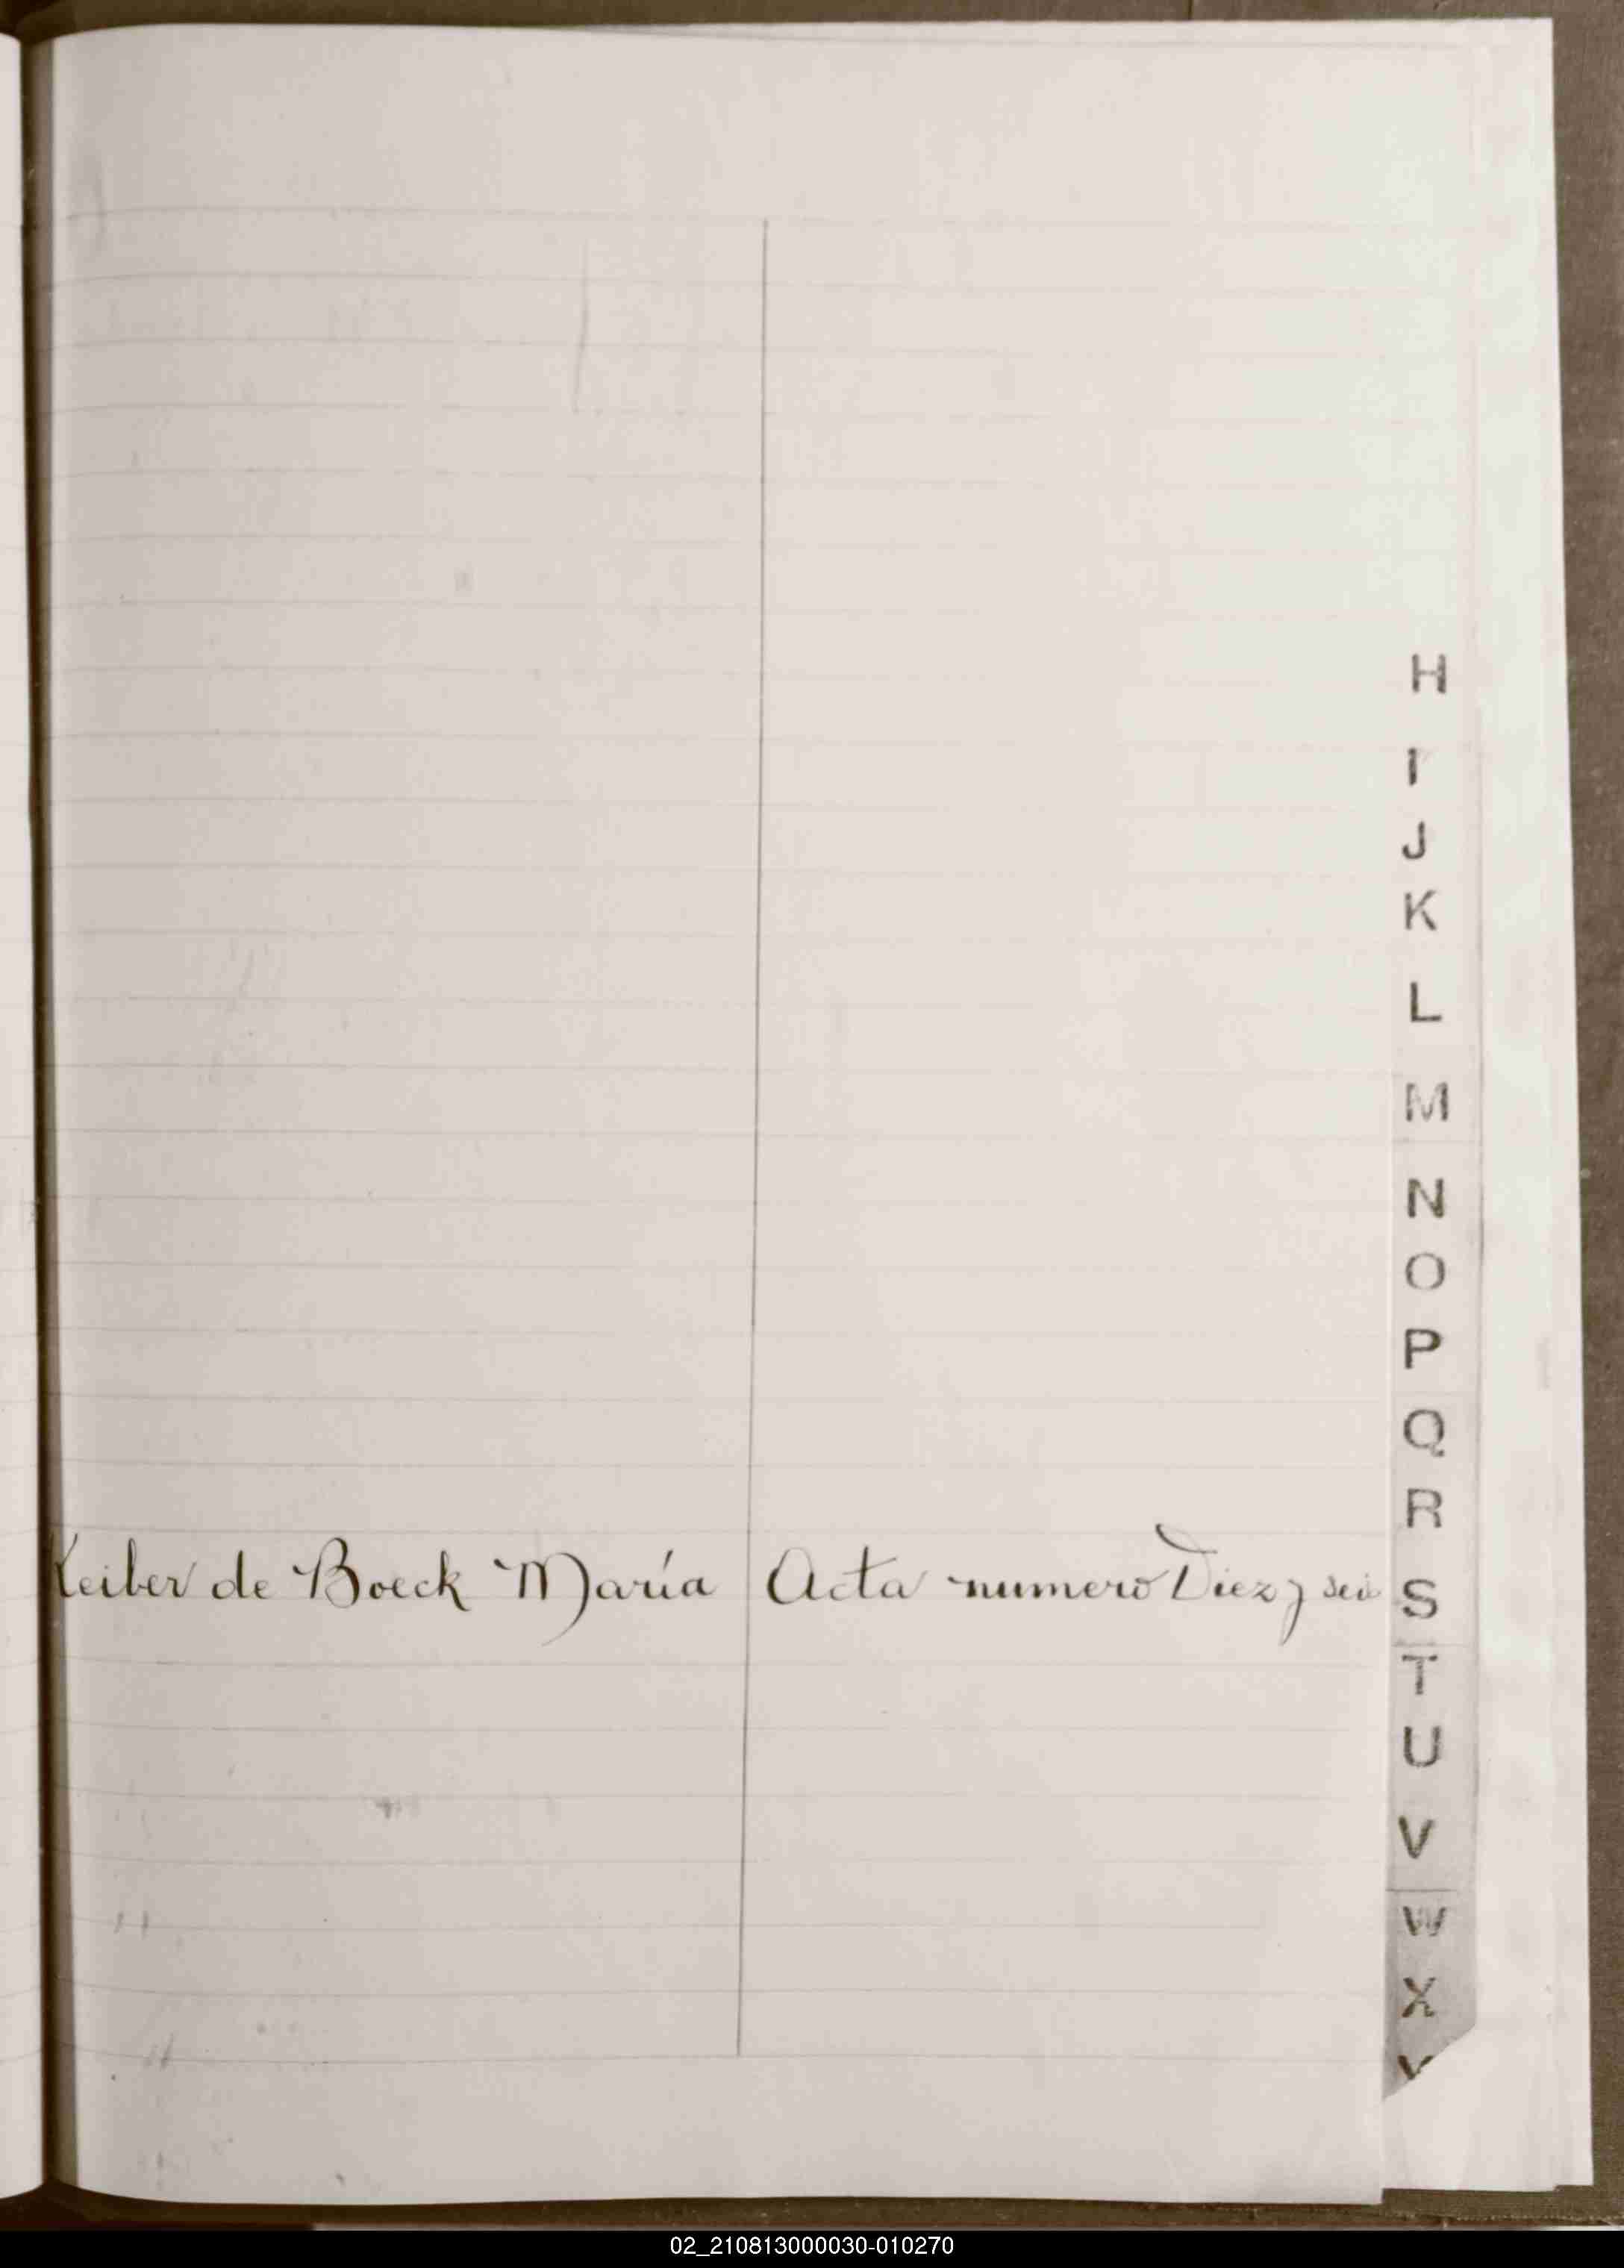 H
I
J
K
L
M
N
O
P
Q
R
Keiber de Boeck María Acta numero Diez y seis
S
T
U
V
W
X
Y
02_210813000030-010270